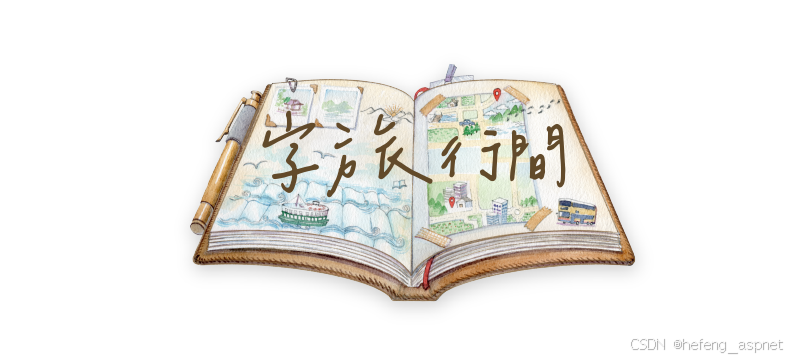 字旅行間
CSDN @hefeng_aspnet